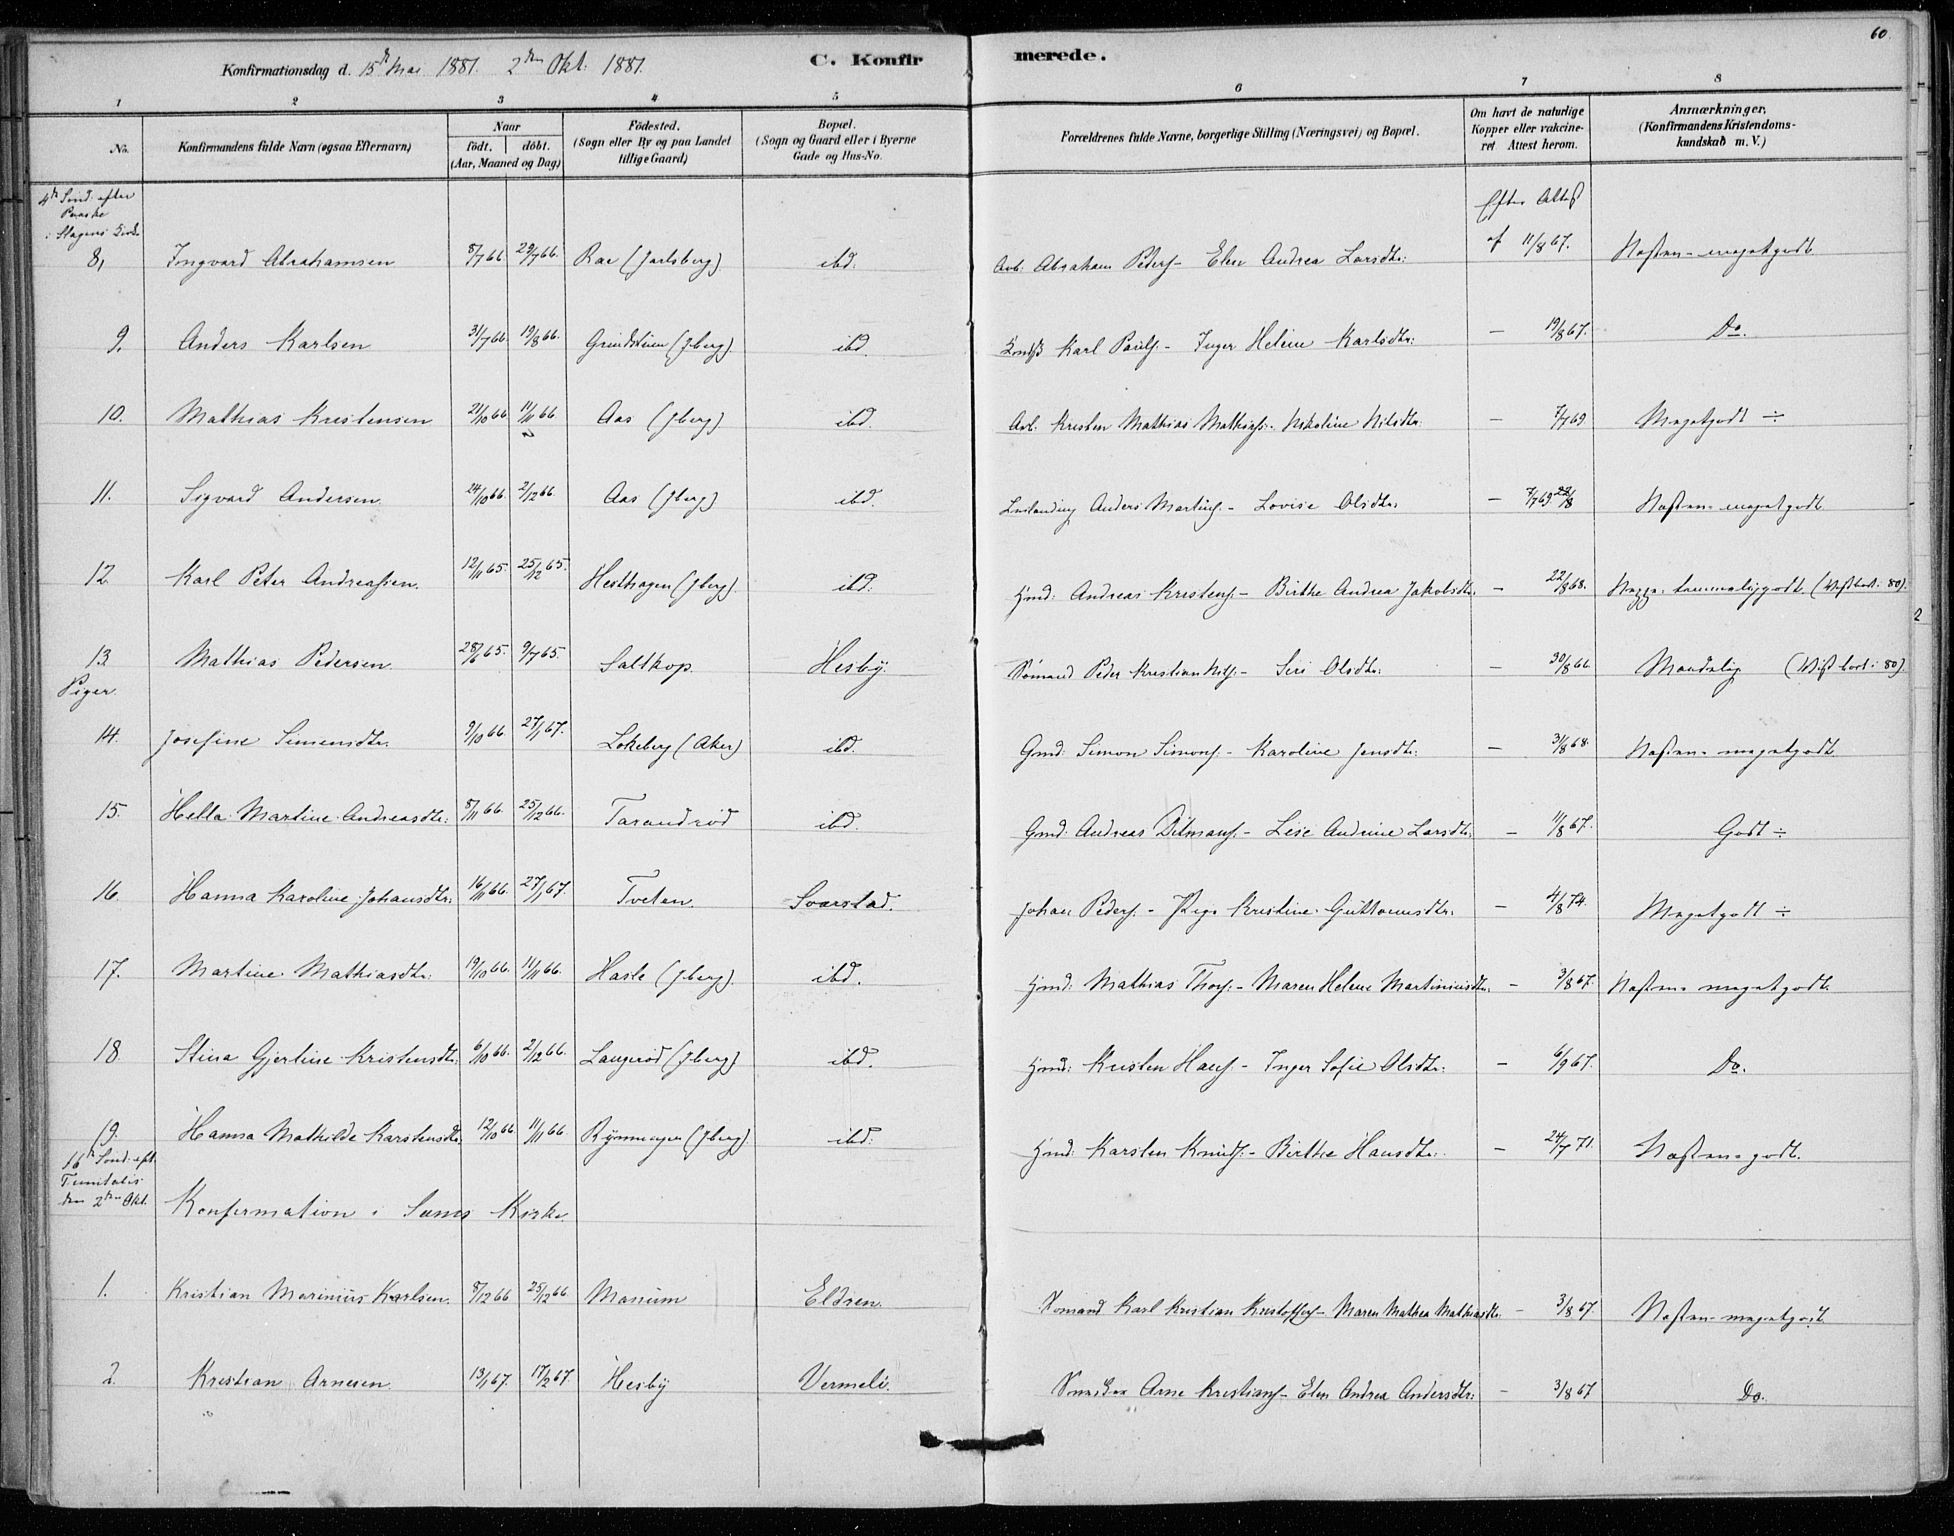 60.
Konfirmationsdag d. 15de Mai 1881. 2den Okt. 1881.
C. Konfirmerede.
1 2 3 4 5 6 7 8
No.
Konfirmandens fulde Navn (ogsaa Efternavn)
Naar
födt. döbt.
(Aar, Maaned og Dag)
Födested.
(Sogn eller By og paa Landet
tillige Gaard)
Bopæl.
(Sogn og Gaard eller i Byerne
Gade og Hus-No.
Forældrenes fulde Navne, borgerlige Stilling (Næringsvei) og Bopæl.
Om havt de naturlige
Kopper eller vakcine-
ret Attest herom.
Anmærkninger.
(Konfirmandens Kristendoms-
kundskab m. V.)
4de Sønd. efter
Paaske
i Slagens Kirke
8, Ingvard Abrahamsen 8/7 66. 29/7 66. Rae (Jarlsberg) ibd. Arb. Abraham Peders. - Elen Andrea Larsdtr. Efter Attest af 11/8 67. Næsten meget godt.
9. Anders Karlsen 31/7 66. 19/8 66. Grindsteinen (Jberg). ibd. Karl Pauls. - Inger Helene Karlsdtr: — 19/8 67. Do.
10. Mathias Kristensen 21/10 66 11/11 66. Aas (Jberg) ibd. Arb. Kristen Mathias Mathias. - Nikoline Nilsdtr. — 7/7 69 Meget godt ÷
11. Sigvard Andersen 24/10 66. 2/12 66. Aas (Jberg) ibd. Anders Martins. - Lovise Olsdtr. — 7/7 69 22/8 Næsten meget godt
12. Karl Peter Andreassen. 12/11 65. 25/12 65. Hesthagen (Jberg). ibd. Hmd: Andreas Kristens. - Birthe Andrea Jakobsdtr. — 22/8 68. temmelig godt. (Vist bort i 80).
13. Mathias Pedersen 28/6 65. 9/7 65. Saltkop. Hesby. Sömand Peder Kristian Nils. - Siri Olsdtr. — 30/8 66. Maadelig (Vist bort i 80)
Piger.
14. Josefine Simensdtr. 9/10 66. 27/1 67. Lokeberg (Aker) ibd. Gmd: Simon Simons. - Karoline Jensdtr: — 3/8 68. Næsten meget godt
15. Hella Martine Andreasdtr: 8/11 66. 25/12 66. Tarandröd ibd. Gmd: Andreas Ditmans. - Lese Andrine Larsdtr. — 11/8 67. Godt ÷
16. Hanna Karoline Johansdtr. 16/11 66. 27/1 67. Tveten. Svarstad. Johan Peders. - Pige Kristine Guttormsdtr. — 4/8 74. Meget godt ÷
17. Martine Mathiasdtr. 19/10 66. 11/11 66. Hasle (Jberg). ibd. Hmd: Mathias Thors. - Maren Helene Martiniusdtr. — 3/8 67. Næsten meget godt.
18 Stina Gjertine Kristensdtr. 6/10 66. 2/12 66. Langeröd (Jberg) ibd. Hmd: Kristen Hans. - Inger Sofie Olsdtr. — 6/9 67. Do.
19. Hanna Mathilde Karstensdtr. 12/10 66 11/11 66 Rynningen (Jberg) ibd. Hmd: Karsten Knuds. - Birthe Hansdtr. — 24/7 71. Næsten godt.
16de Sönd. eft.
Trinitatis
den 2den Okt.
Konfirmation i Sems Kirke.
1. Kristian Marinius Karlsen. 8/12 66 25/12 66 Manum Eldren. Sömand Karl Kristian Kristoffers. - Maren Mathea Mathiasdtr. — 3/8 67. Næsten meget godt.
2. Kristian Arnesen 13/1 67. 17/2 67. Hesby Vermeli. Arne Kristians. - Elen Andrea Andersdtr. — 3/8 67 Do.